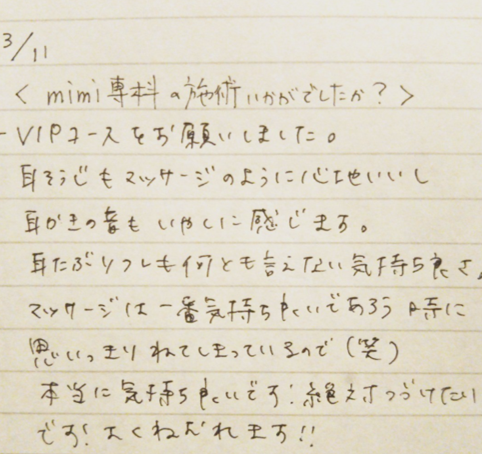 3/11
< mimi専科の施術いかがでしたか? >
- VIPコースをお願いしました。
耳そうじもマッサージのように心地いいし
耳かきの音もいやしに感じます。
耳たぶリフレも何とも言えない気持ち良さ。
マッサージは一番気持ち良いであろう時に
思いっきりねてしまっているので(笑)
本当に気持ち良いです!絶対つづけたい
です!よくねむれます!!